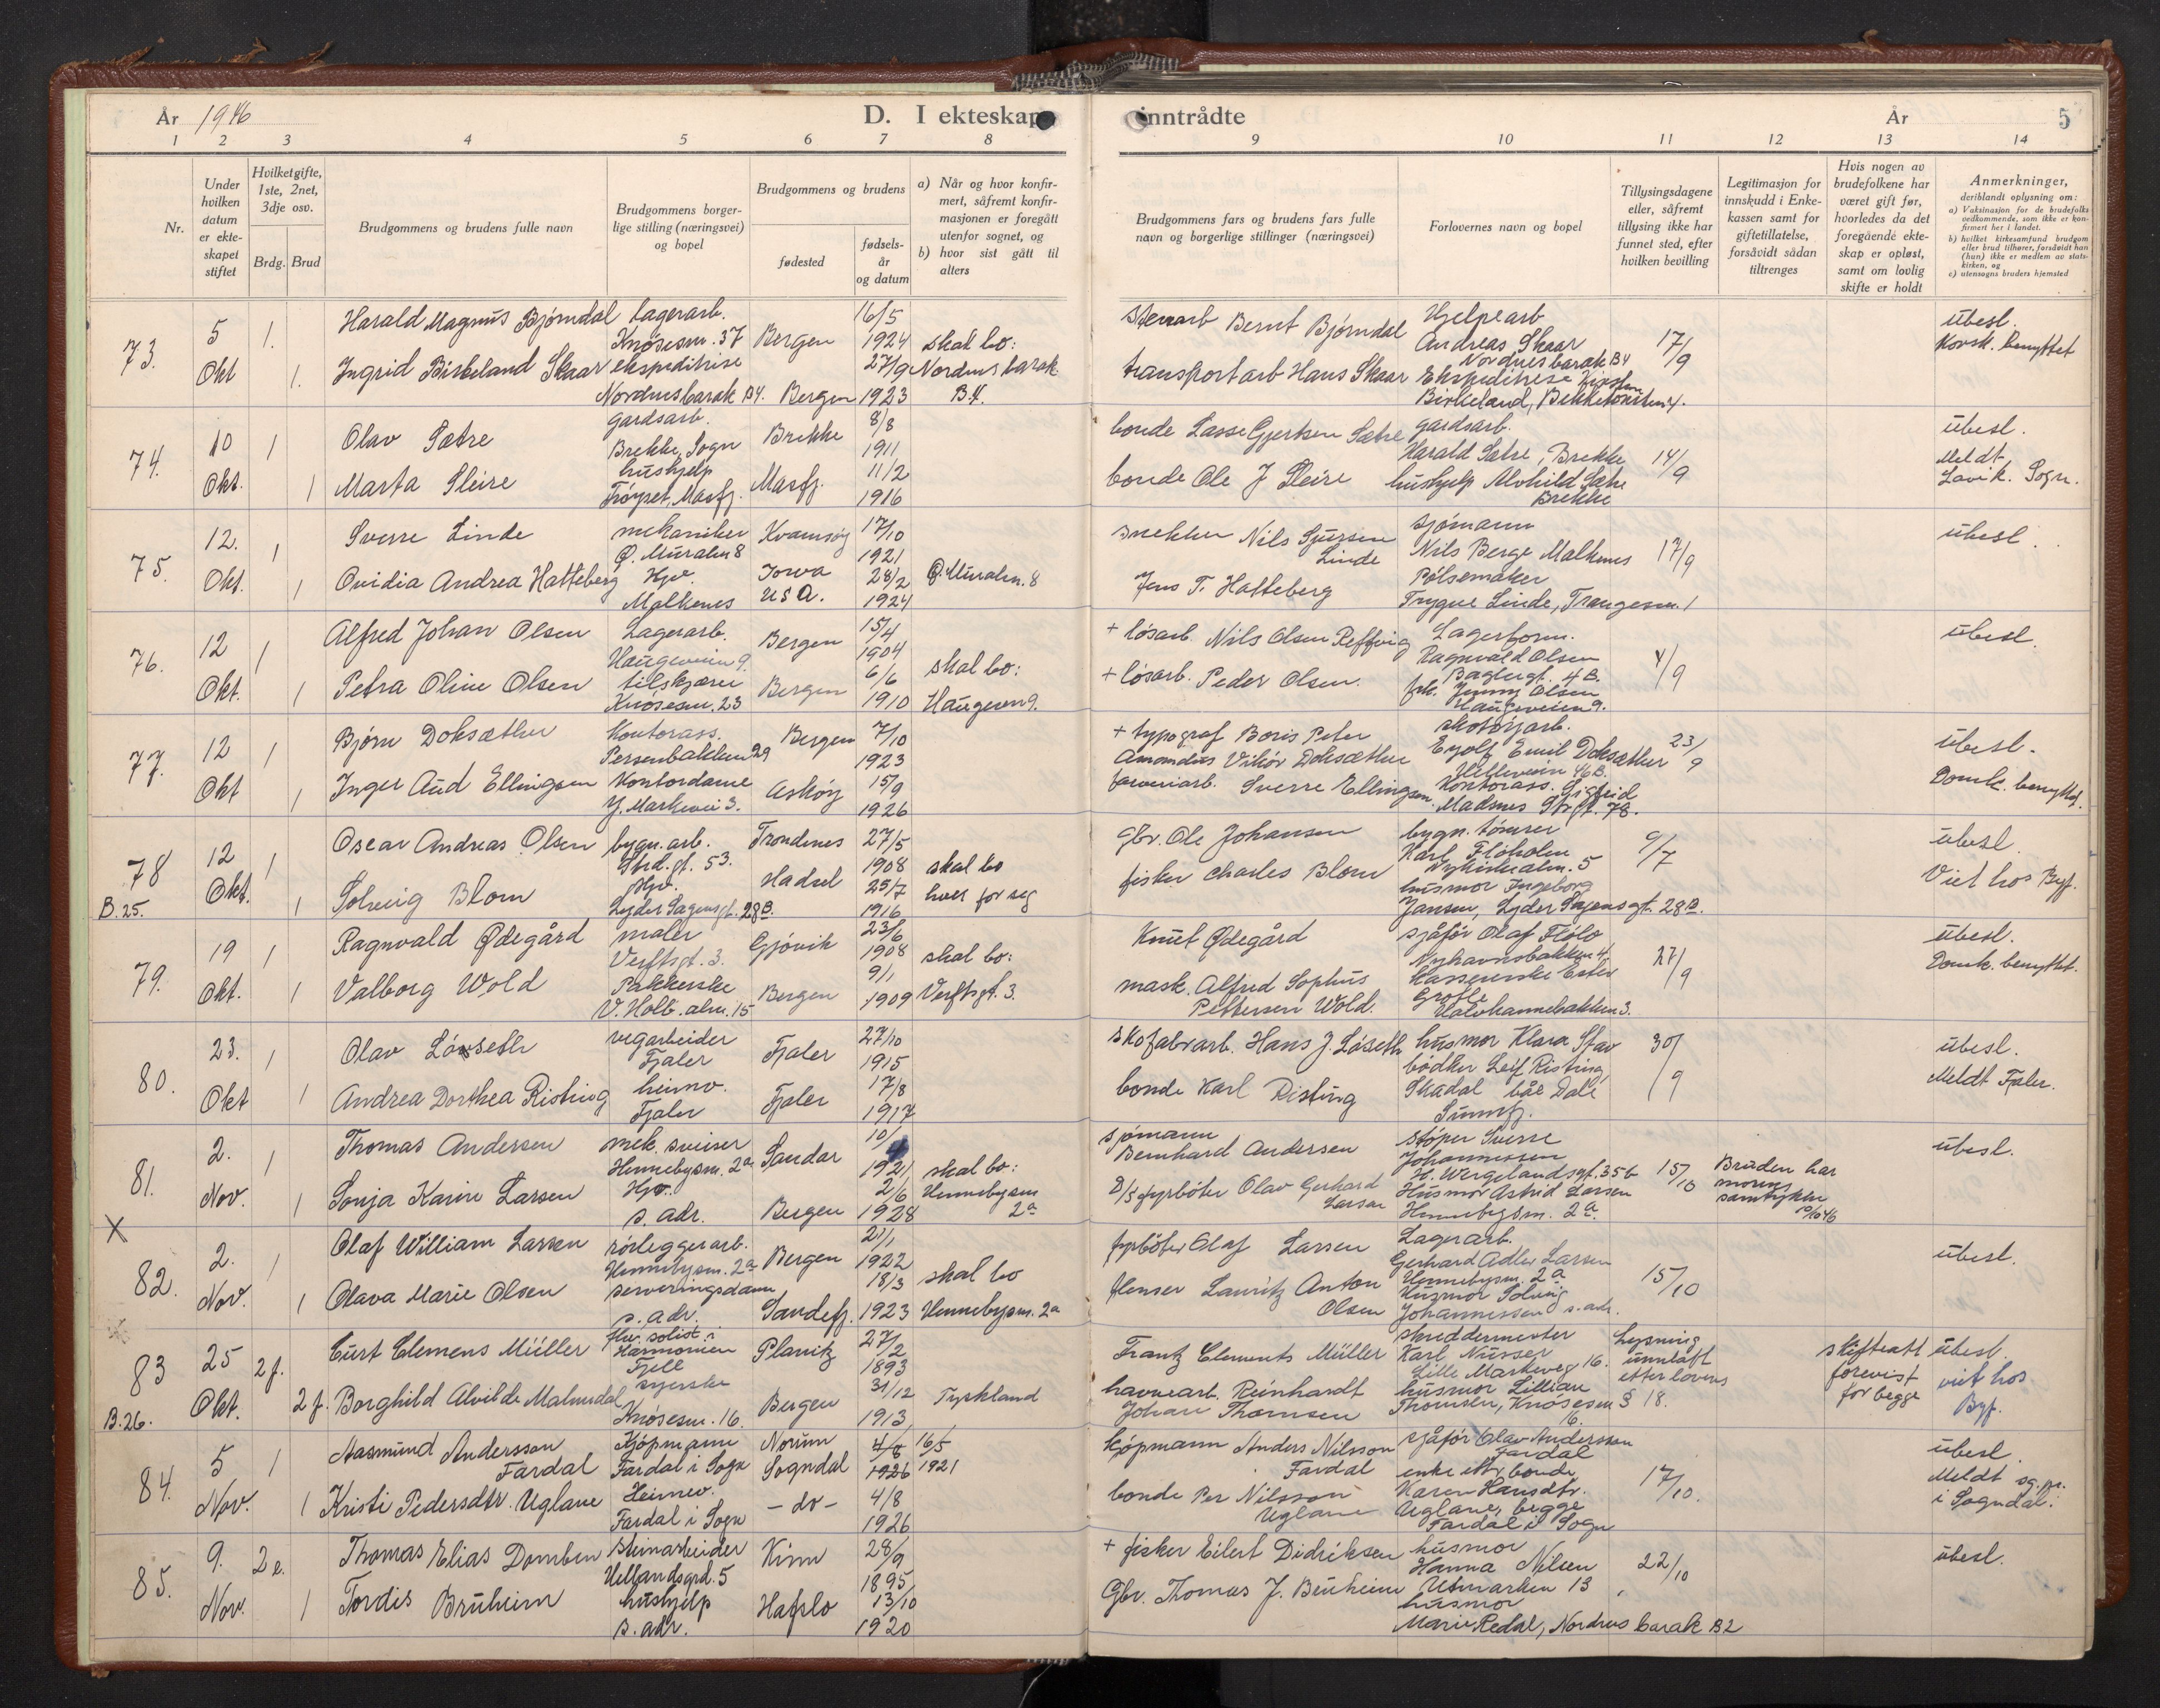 År 1946 D. I ekteskap inntrådte År 5
1 2 3 4 5 6 7 8 9 10 11 12 13 14
Nr.
Under hvilken datum er ekteskapet stiftet
Hvilket gifte, 1ste, 2net, 3dje osv.
Brdg. Brud
Brudgommens og brudens fulle navn
Brudgommens borgerlige stilling (næringsvei) og bopel
Brudgommens og brudens
fødested
fødselsår og datum
a) Når og hvor konfirmert, såfremt konfirmasjonen er foregått utenfor sognet, og
b) hvor sist gått til alters
Brudgommens fars og brudens fars fulle navn og borgerlige stillinger (næringsvei)
Forlovernes navn og bopel
Tillysingsdagene eller, såfremt tillysing ikke har funnet sted, efter hvilken bevilling
Legitimasjon for innskudd i Enkekassen samt for giftetillatelse, forsåvidt sådan tiltrenges
Hvis nogen av brudefolkene har været gift før, hvorledes da det foregående ekteskap er opløst, samt om lovlig skifte er holdt
Anmerkninger, deriblandt oplysning om:
a) Vaksinasjon for de brudefolks vedkommende, som ikke er konfirmert her i landet.
b) hvilket kirkesamfund brudgom eller brud tilhører, forsåvidt han (hun) ikke er medlem av statskirken, og
c) utensogns bruders hjemsted
73. 5 Okt 1. 1.
Harald Magnus Bjørndal lagerarb. Knøsesm. 37 Bergen 16/5 1924
Ingrid Birkeland Skaar ekspeditrise Nordnesbarak B4. Bergen 27/9 1923
skal bo: Nordnesbarak B.4.
Bernt Bjørndal
transportarb Hans Skaar
Hjelpearb Andreas Skaar Nordnesbarak B4
Ekspeditrise Birkeland,
17/9
ubesl. Korsk. benyttet
74. 10 Okt. 1 1
Olav Sætre gardsarb. Brekke, Sogn Brekke 8/8 1911
Marta Sleire hushjelp Masfj. Masfj. 11/2 1916
bonde Lasse Gjertsen Sætre
bonde Ole J Sleire
gardsarb. Harald Sætre, Brekke
hushjelp Alvhild Sætre Brekke
14/9
ubesl. Meldt Lavik. Sogn.
75. 12. Okt. 1 1
Sverre Linde mekaniker Ø. Muralm 8 Kvamsøy 17/10 1921
Ovidia Andrea Hatteberg Hpv. Malkenes Iowa USA. 28/2 1924
Ø. Muralm. 8
snekker Nils Sjursen Linde
Jens T. Hatteberg
sjømann Nils Berge Malkenes
Pølsemaker Trygve Linde, Trangesm. 1
17/9
ubesl.
76. 12 Okt. 1 1
Alfred Johan Olsen Lagerarb. Haugeveien 9. Bergen 15/4 1904
Petra Oline Olsen tilskjærer Knøsesm. 23 Bergen 6/6 1910
skal bo: Haugeveien 9.
+ løsarb. Nils Olsen Reffvig
+ løsarb. Peder Olsen.
Lagerform. Ragnvald Olsen Baglergt. 4B.
frk. Jenny Olsen Haugeveien 9.
4/9
ubesl.
77. 12 Okt 1 1
Bjørn Doksæther Kontorass. Persenbakken 29 Bergen 7/10 1923
Inger Aud Ellingsen Kontordame Y. Markevei 3. Askøy 15/9 1926
+ typograf Boris Peter Amandus Vikør Doksæther
Sverre Ellingsen.
skotøyarb. Eyolf Emil Doksæther Helleveien 46B.
Kontorass. Sigfrid Madsnes Strgt. 78.
23/9
ubesl. Domk. benyttet.
78 B.25. 12 Okt. 1 1
Oscar Andreas Olsen bygn. arb. Strd.gt. 53. Trondenes 27/5 1908
Solveig Blom Hpv. Lyder Sagensgt. 28B. Hadsel 25/7 1916
skal bo hver for seg
Gbr. Ole Johansen
fisker Charles Blom
bygn. tømrer Karl Floholm Nykirkealm. 5
husmor Ingeborg Jansen, Lyder Sagensgt. 28B.
9/7
ubesl. Viet hos Byf.
79. 19 Okt. 1 1
Ragnvald Ødegård maler Verftsgt. 3. Gjøvik 23/6 1908
Valborg Wold Pakkerske V. Holb. alm. 15 Bergen 9/1 1909
skal bo: Verftsgt. 3.
Knut Ødegård
mask. Alfred Sophus Pettersen Wold.
sjåfør Olaf Flólo Nyhavnsbakken 4.
Kassererske Ester Halvkannebakken 3.
27/9
ubesl. Domk. benyttet.
80. 23. Okt 1 1
Olav Løvseth vegarbeider Fjaler Fjaler 27/10 1915
Andrea Dorthea Risting heimv. Fjaler Fjaler 17/8 1917
skofabrarb. Hans J. Løseth
bonde Karl Risting
husmor Klara Stav
bødker Leif Risting, Skadal båe Dale Sunnfj.
30/9
ubesl. Meldt Fjaler.
81. 2. Nov. 1 1
Thomas Andersen mek. sveiser Hennebysm. 2a Sandar 10/ 1921
Sonja Karin Larsen Hpv. s. adr. Bergen 2/6 1928
skal bo: Hennebysm 2a
sjømann Bernhard Andersen
D/S fyrbøter Olav Gerhard Larsen
støper Sverre Johannessen H. Wergelandsgt. 35b
Husmor Astrid Larsen Hennebysm. 2a.
15/10
Bruden har morens samtykke 10/10 46
ubesl.
X
82. 2. Nov. 1 1
Olaf William Larsen rørleggerarb. Hennebysm. 2a Bergen 21/1 1922
Olava Marie Olsen serveringsdame s. adr. Sandefj. 18/3 1923
skal bo Hennebysm. 2a
fyrbøter Olaf Larsen
flenser Lauritz Anton Olsen
Lagerarb. Gerhard Adler Larsen Hennebysm. 2a
Husmor Solveig Johannessen s. adr.
15/10
ubesl.
83 B.26. 25 Okt. 2f. 2f.
Curt Clemens Müller fhv. solist i Harmonien Fjell Planitz 27/2 1893
Borghild Alvilde Malmedal syerske Knøsesm. 16. Bergen 31/12 1913
Tyskland
Frantz Clements Müller
havnearb. Reinhardt Johan Thomsen
skreddermester Karl Nusser Lille Markeveg 16.
husmor Lillian Thomsen, Knøsesm 16.
Lysning unnlatt etter lovens § 18.
skifteatt forevist for begge
ubesl. viet hos Byf.
84. 5 Nov. 1 1
Aasmund Andersson Fardal Kjøpmann Fardal i Sogn Norum Sogndal 4/8 1926 16/5 1921
Kristi Pedersdtr. Uglane Heimev. Fardal i Sogn - do - 4/8 1926
køpmann Anders Nilsson Fardal
bonde Per Nilsson Uglane
sjåfør Olav Andersson Fardal
enke ettr bonde Karen Hansdtr. Uglane, begge Fardal i Sogn
17/10.
ubesl. Meldt sg.pr. i Sogndal.
85. 9. Nov. 2e. 1
Thomas Elias Domben Steinarbeider Hellandsgrd. 5 Kinn 28/9 1895
Tordis Bruheim hushjelp s. adr. Hafslo 13/10 1920
+ fisker Eilert Didriksen
Gbr. Thomas J. Bruheim
husmor Hanna Nilsen Utmarken 13
husmor Marie Redal, Nordnes barak B2
22/10
ubesl.